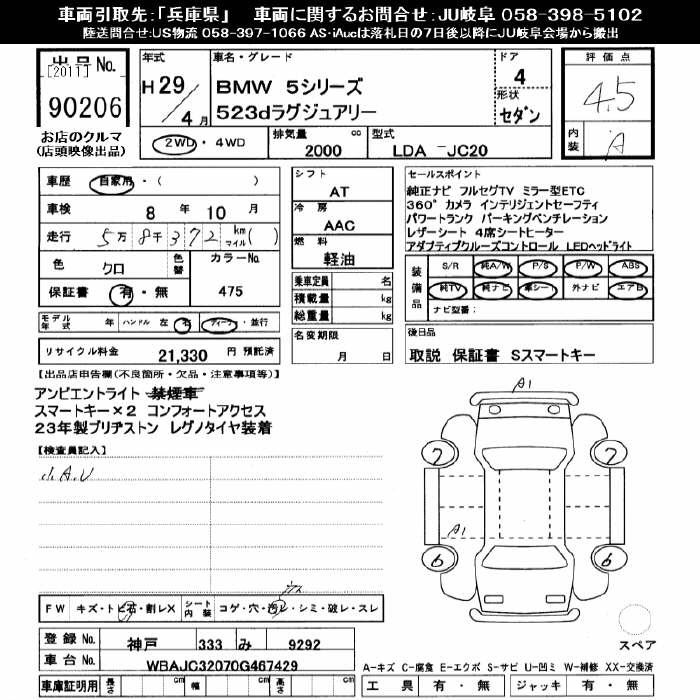 車両引取先:「兵庫県」 車両に関するお問合せ:JU岐阜 058-398-5102
陸送問合せ:US物流 058-397-1066 AS・iAucは落札日の7日後以降にJU岐阜会場から搬出
出品No.
[2011]
90206
お店のクルマ
(店頭映像出品)
年式
H29/4月
車名・グレード
BMW 5シリーズ
523dラグジュアリー
ドア
4
形状
セダン
評価点
4.5
内装
A
2WD・4WD
排気量
2000
cc
型式
LDA -JC20
車歴
自家用・( )
車検
8 年 10 月
走行
5万8千372 km マイル( )
色
クロ
色替
カラーNo.
475
保証書
有・無
モデル年式
年
ハンドル 左 右
ディーラー・並行
リサイクル料金
21,330 円 預託済
シフト
AT
冷房
AAC
燃料
軽油
乗車定員 名
積載量 kg
総重量 kg
名変期限
月 日
セールスポイント
純正ナビ フルセグTV ミラー型ETC
360° カメラ インテリジェントセーフティ
パワートランク パーキングベンチレーション
レザーシート 4席シートヒーター
アダプティブクルーズコントロール LEDヘッドライト
装備品
S/R 純A/W P/S P/W ABS
純TV 純ナビ 革シート 外ナビ エアB
ナビ型番:
後日品
取説 保証書 Sスマートキー
【出品店申告欄(不良箇所・欠品・注意事項等)】
アンビエントライト 禁煙車
スマートキー×2 コンフォートアクセス
23年製ブリヂストン レグノタイヤ装着
【検査員記入】
小A.U
A1
7
7
A1
6
6
スペア
FW キズ・トビ石・割レX
シート内装 コゲ・穴・汚レ・シミ・破レ・スレ
登録No.
神戸 333 み 9292
車台No.
WBAJC32070G467429
車庫証明用 長さ cm 幅 cm 高さ cm
A-キズ C-腐食 E-エクボ S-サビ U-凹ミ W-補修 XX-交換済
工具 有・無 ジャッキ 有・無